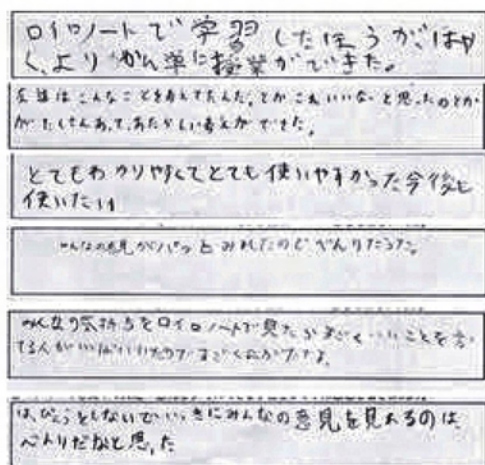 ロイロノートで学習したほうがはや
く、よりかん単に授業ができた。
友達はこんなことを考えてたんだ。とかこれいいなと思ったのとか
がたくさんあって、あたらしい考えができた。
とてもわかりやすくてとても使いやすかった今後も
使いたい
みんなの意見がパッとみれたのでべんりだった。
みんなの気持ちをロイロノートで見たらすごくいいことを言っ
てる人がいっぱいいたのですごく
はっぴょうとしないでいっきにみんなの意見を見れるのは
べんりだなと思った